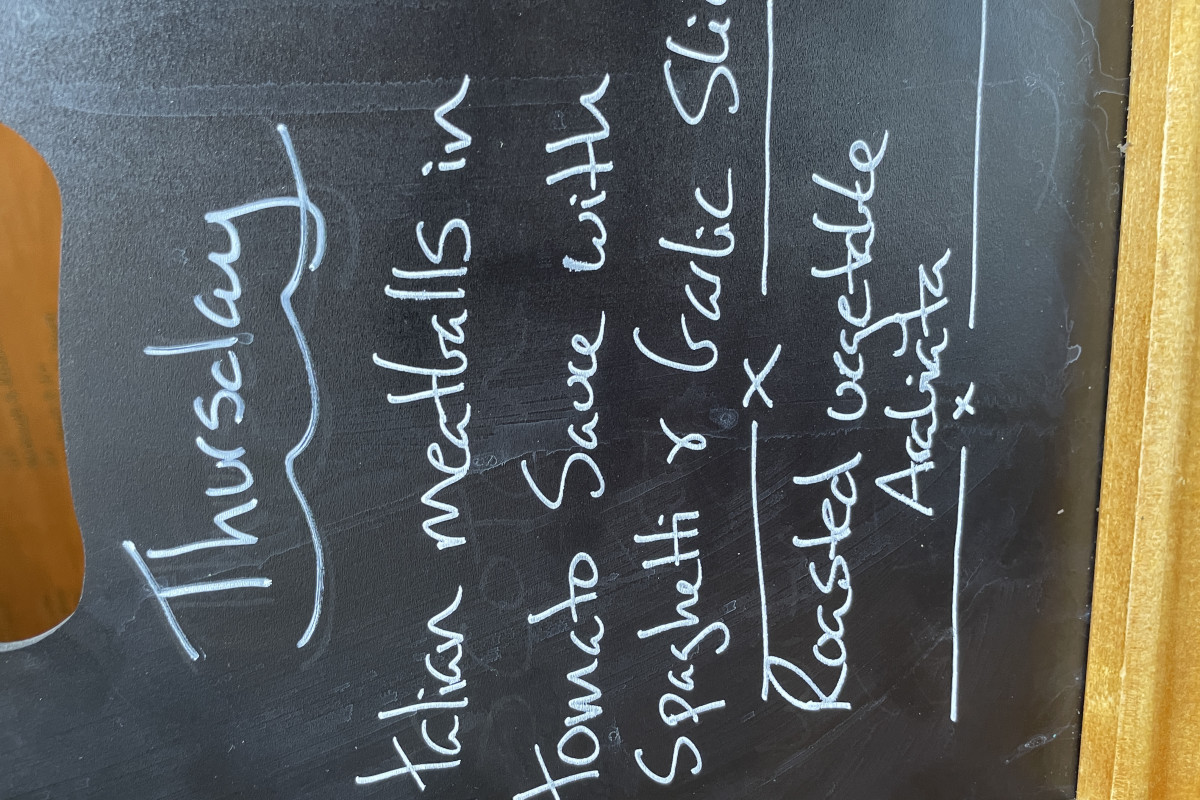 Thursday
talian meatballs in
tomato Sauce with
Spaghetti & Garlic
x
Roasted vegetable
Arabiata
x